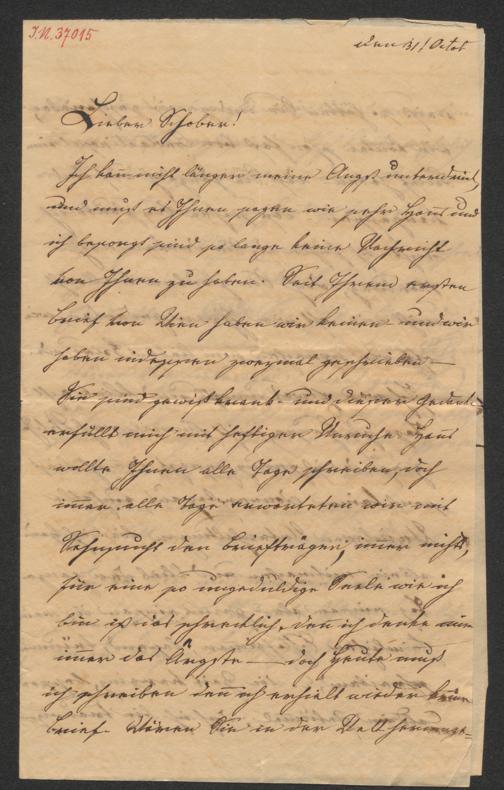 I.N. 37015
den 31t Octob
Lieber Schober!
Ich kann nicht länger meine Angst unterdrück,
und muß es Ihnen sagen wie sehr Hans und
ich besorgt sind so lange keine Nachricht
von Ihnen zu haben. Seit Ihrem ersten
Brief von Wien haben wir keinen und wir
haben indessen zweymal geschrieben —
Sie sind gewiß krank – und dieser Gedank
erfüllt mich mit heftiger Unruhe. Hans
wollte Ihnen alle Tage schreiben, doch
immer alle Tage erwarteten wir mit
Sehnsucht den Briefträger, immer nichts,
für eine so ungeduldige Seele wie ich
bin ist das schrecklich, denn ich denke mir
immer das Ängste — doch heute muß
ich schreiben den ich erhielt wieder keine
Brief. Wären Sie in der Welt herumge=